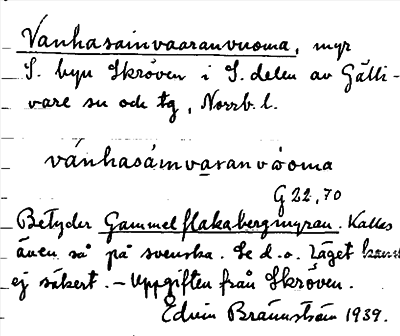 Vanhasainvaaranvuoma, myr
S. byn Skröven i S. delen av Gälli-
vare sn och tg, Norrb. l.
vánhasáinvaranvuoma
G 22,70
Betyder Gammelflakabergmyran. Kallas
även så på svenska. Se d.o. Läget
ej säkert. – Uppgiften från Skröven.
Edvin Brännström 1939.